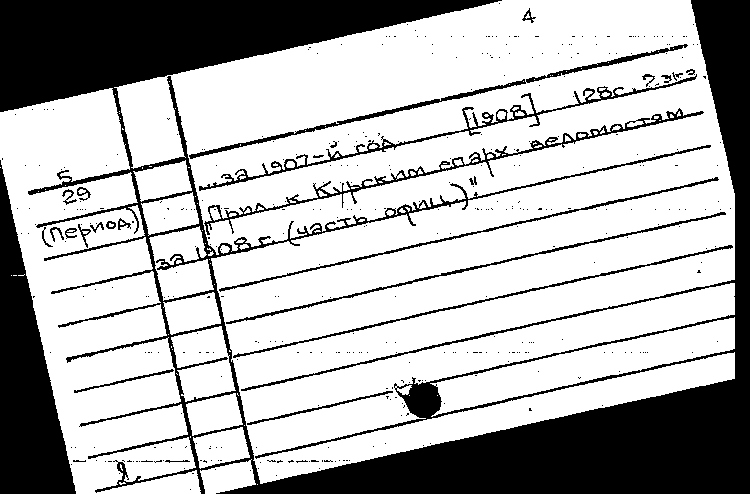 4
5
29
(Период)
...за 1907-й год [1908]. 128с. 2 экз.
"Прил. к Курским епарх. ведомостям
за 1908 г. (часть офиц.)".